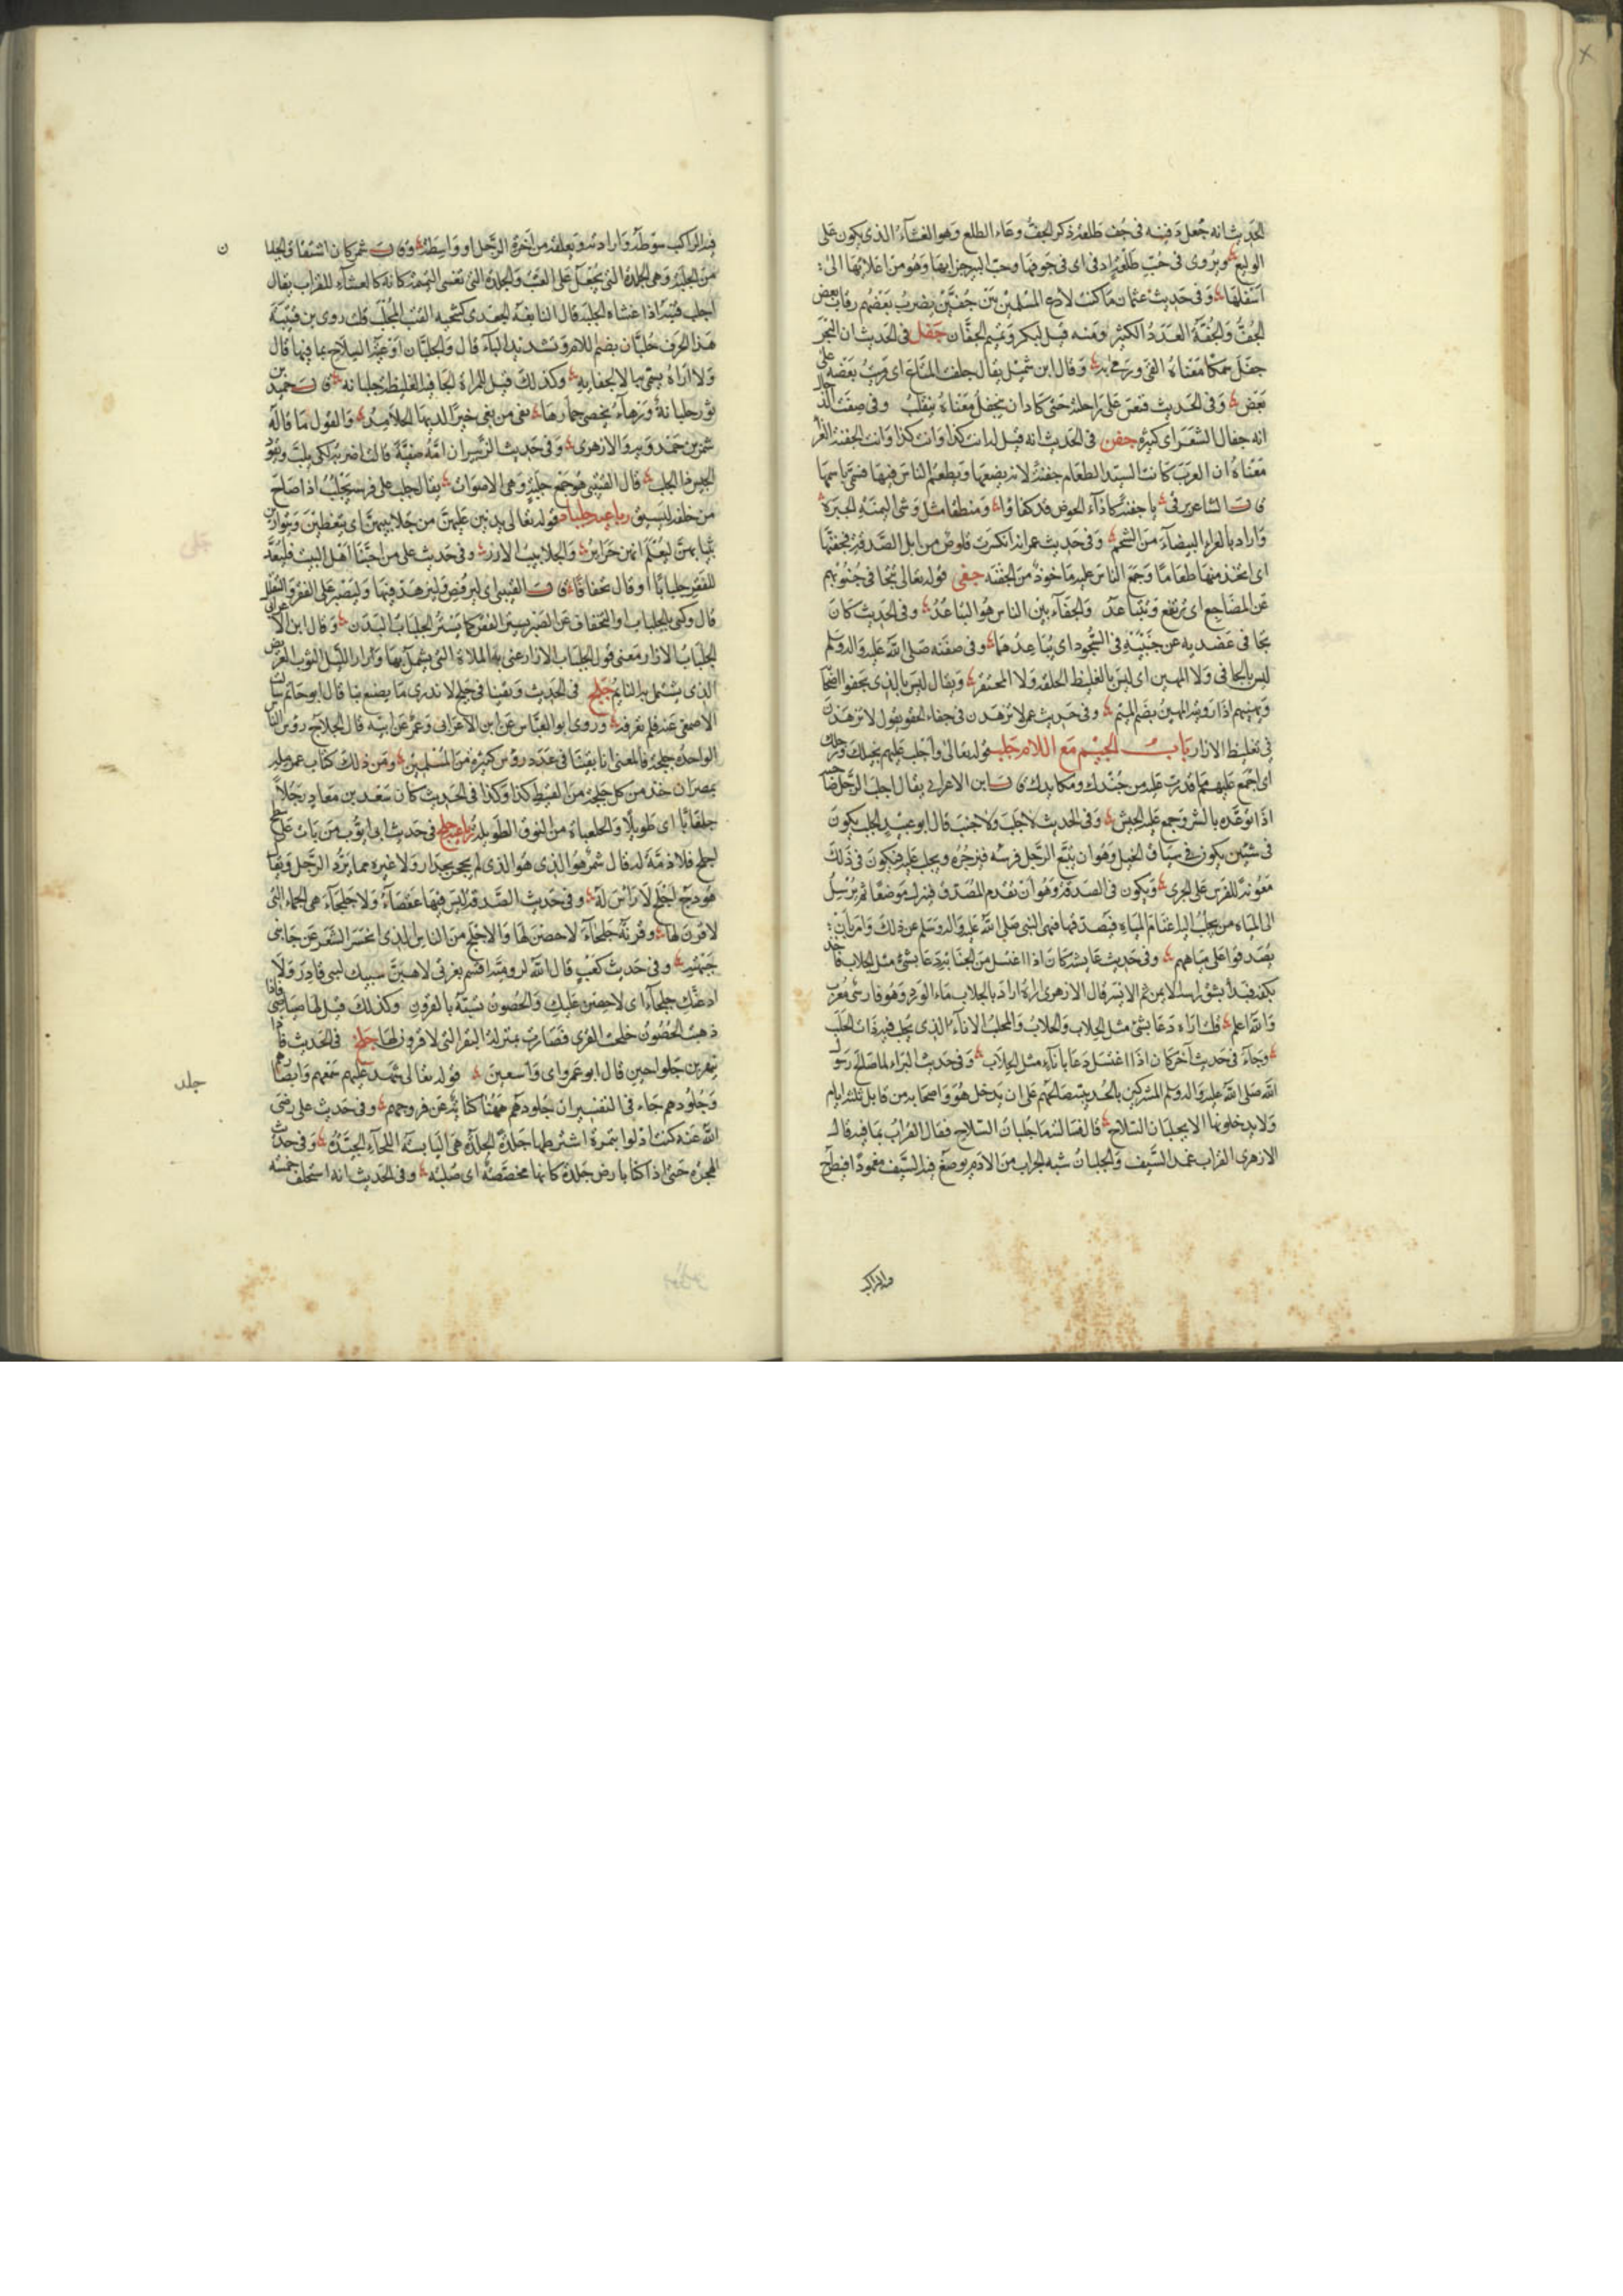 الحديث انه جعل دفينه في جف طلعة ذكر الجف وعاء الطلع وهو الغشاء الذي يكون على
الوليع ويروى في جب طلعة اي في جوفها وجب البير جرابها وهو من اعلاها الى
اسفلها وفي حديث عثمان ما كنت لادع المسلمين بين جفين يضرب بعضهم رقاب بعض
الجف والجفة العدد الكثير ومنه قيل لبكر وتميم الجفان جفل في الحديث ان البحر
جفل سمكا معناه القى ورمى به وقال ابن شميل يقال جلف المتاع اي رمى بعضه على
بعض وفي الحديث فنعس على راحلته حتى كاد ان ينجفل معناه ينقلب وفي صفة الدجال
انه جفال الشعر اي كثيره جفن في الحديث انه قيل له انت كذا وانت كذا وانت الجفنة الغراء
معناه ان العرب كانت السيد المطعام جفنة لانه يضعها ويطعم الناس فيها فسمي باسمها
قال الشاعر يرثي يا جفنة كازاء الحوض قد كفاوا ومنطقا مثل وشي اليمنة الحبرة
واراد بالغراء البيضاء من الشحم وفي حديث عمر انه انكسرت قلوص من ابل الصدقة فجفنها
اي اتخذ منها طعاما وجمع الناس عليه ماخوذ من الجفنة جفى قوله تعالى تتجافى جنوبهم
عن المضاجع اي ترتفع وتتباعد والجفاء بين الناس هو التباعد وفي الحديث كان
يجافي عضديه عن جنبيه في السجود اي يباعدهما وفي صفته صلى الله عليه واله وسلم
ليس بالجافي ولا المهين اي ليس بالغليظ الخلقة ولا المحتقر ويقال ليس بالذي يجفو اصحابه
ويهينهم اذا رويته المهين بضم الميم وفي حديث عمر لا تزهدن في جفاء الحقو يقول لا تزهدن
في تغليظ الازار باب الجيم مع اللام جلب قوله تعالى واجلب عليهم بخيلك ورجلك
اي اجمع عليهم ما قدرت عليه من جندك ومكايدك قال ابن الاعرابي يقال اجلب الرجل صاحبه
اذا توعده بالشر وجمع عليه الجيش وفي الحديث لا جلب ولا جنب قال ابو عبيد الجلب يكون
في شيئين يكون في سباق الخيل وهو ان يتبع الرجل فرسه فيزجره ويجلب عليه فيكون في ذلك
معونة للفرس على الجري ويكون في الصدقة وهو ان تقدم المصدق فينزل موضعا ثم يرسل
الى المياه من يجلب اليه اغنام المياه فيصدقها فنهى النبي صلى الله عليه واله وسلم عن ذلك وامر بان
يصدقوا على مياههم وفي حديث عايشة كان اذا اغتسل من الجنابة دعا بشئ مثل الجلاب فاخذ
بكفه فبدا بشق راسه الايمن ثم الايسر قال الازهري اراه اراد بالجلاب ماء الورد وهو فارسي معرب
والله اعلم قلت اراه دعا بشئ مثل الحلاب والحلاب والمحلب الاناء الذي يحلب فيه ذات الحلب
وجاء في حديث اخر كان اذا اغتسل دعا باناء مثل الحلاب وفي حديث البراء لما صالح رسول
الله صلى الله عليه واله وسلم المشركين بالحديبية صالحهم على ان يدخل هو واصحابه من قابل ثلثة ايام
ولا يدخلونها الا بجلبان السلاح قال فسالته ما جلبان السلاح فقال القراب بما فيه قال
الازهري القراب غمد السيف والجلبان شبه الجراب من الادم يوضع فيه السيف مغمودا فيطرح
فيه الراكب
فيه الراكب سوطه واراد به ويعلقه من اخرة الرحل او واسطته وقال شمر كان اشتقاق الجلبان
من الجلبة وهي الجلدة التي تجعل على القتب والجلدة التي تغشى التميمة كانه كالغشاء للقراب يقال
اجلب قتبه اذا غشاه الجلبة قال النابغة الجعدي كتنحية القتب المجلب قلت روى بن قتيبة
هذا الحرف جلبان بضم اللام وتشديد الباء قال والجلبان اوعية السلاح بما فيها قال
ولا اراه سمي بها الا لجفايه وكذلك قيل للمراة الجافية الغليظة جلبانة قال حميد بن
ثور جلبانة ورهاء تخصي حمارها بفي من بغى خيرا لديها الجلاميد والقول ما قاله
شمر بن حمدويه والازهري وفي حديث الزبير ان امه صفية قالت اضربه لكي يلب ويقود
الجيش ذا الجلب قال القتيبي هو جمع جلبة وهي الاصوات يقال جلب على فرسه يجلب اذا صاح
من خلفه ليسبق رباعيه جلباب قوله تعالى يدنين عليهن من جلابيبهن اي يتغطين ويتوارين
بثيابهن ليعلم انهن حراير والجلابيب الازر وفي حديث علي من احبنا اهل البيت فليعد
للفقر جلبابا او قال تجفافا قال القتيبي اي ليرفض وليزهد فيها وليصبر على الفقر والتقلل
قال وكنى بالجلباب او التجفاف عن الصبر يستر الفقر كما يستر الجلباب البدن وقال ابن الاعرابي
الجلباب الازار معنى قول الجلباب الازار عنى به الملاة التي يشتمل بها وازار الليل الثوب العريض
الذي يشتمل به النايم جلج في الحديث وبقينا في جلج لا ندري ما يصنع بنا قال ابو حاتم سالت
الاصمعي عنه فلم يعرفه وروى ابو العباس عن ابن الاعرابي وعمرو عن ابيه قال الجلاج روس الناس
الواحدة جلجة فالمعنى انا بقينا في عدد روس كثيرة من المسلمين ومن ذلك كتاب عمر
بمصر ان خذ من كل جلجة من القبط كذا وكذا في الحديث كان سعد بن معاذ رجلا
جلعابا اي طويلا والجلعباة من النوق الطويلة رباعيه جلح في حديث ابي ايوب من بات على سطح
اجلح فلا ذمة له قال شمر هو الذي لم يحجر بجدار ولا غيره مما يرد الرجل ويقال
هودج اجلح لا راس له وفي حديث الصدقة ليس فيها عقصاء ولا جلحاء هي الجماء التي
لا قرن لها وقرية جلحاء لا حصن لها والاجلح من الناس الذي انحسر الشعر عن جانبي
جبهته وفي حديث كعب قال الله لرومية اقسم بعزتي لاهبن سبيك لبني قاذر ولا
ادعنك جلحاء اي لا حصن عليك والحصون تشبه بالقرون وكذلك قيل لها صياصي فاذا
ذهبت الحصون جلحت القرى فصارت بمنزلة البقر التي لا قرون لها جلخ في الحديث فاذا
بنهرين جلواخين قال ابو عمرو اي واسعين قوله تعالى شهد عليهم سمعهم وابصارهم
وجلودهم جاء في التفسير ان جلودهم ههنا كناية عن فروجهم وفي حديث علي رضي
الله عنه كنت ادلو بتمرة اشترطها جلدة الجلدة هي اليابسة اللحاء الجيدة وفي حديث
الهجرة حتى اذا كنا بارض جلدة كانها مجصصة اي صلبة وفي الحديث انه استحلف خمسة
ن
جلد